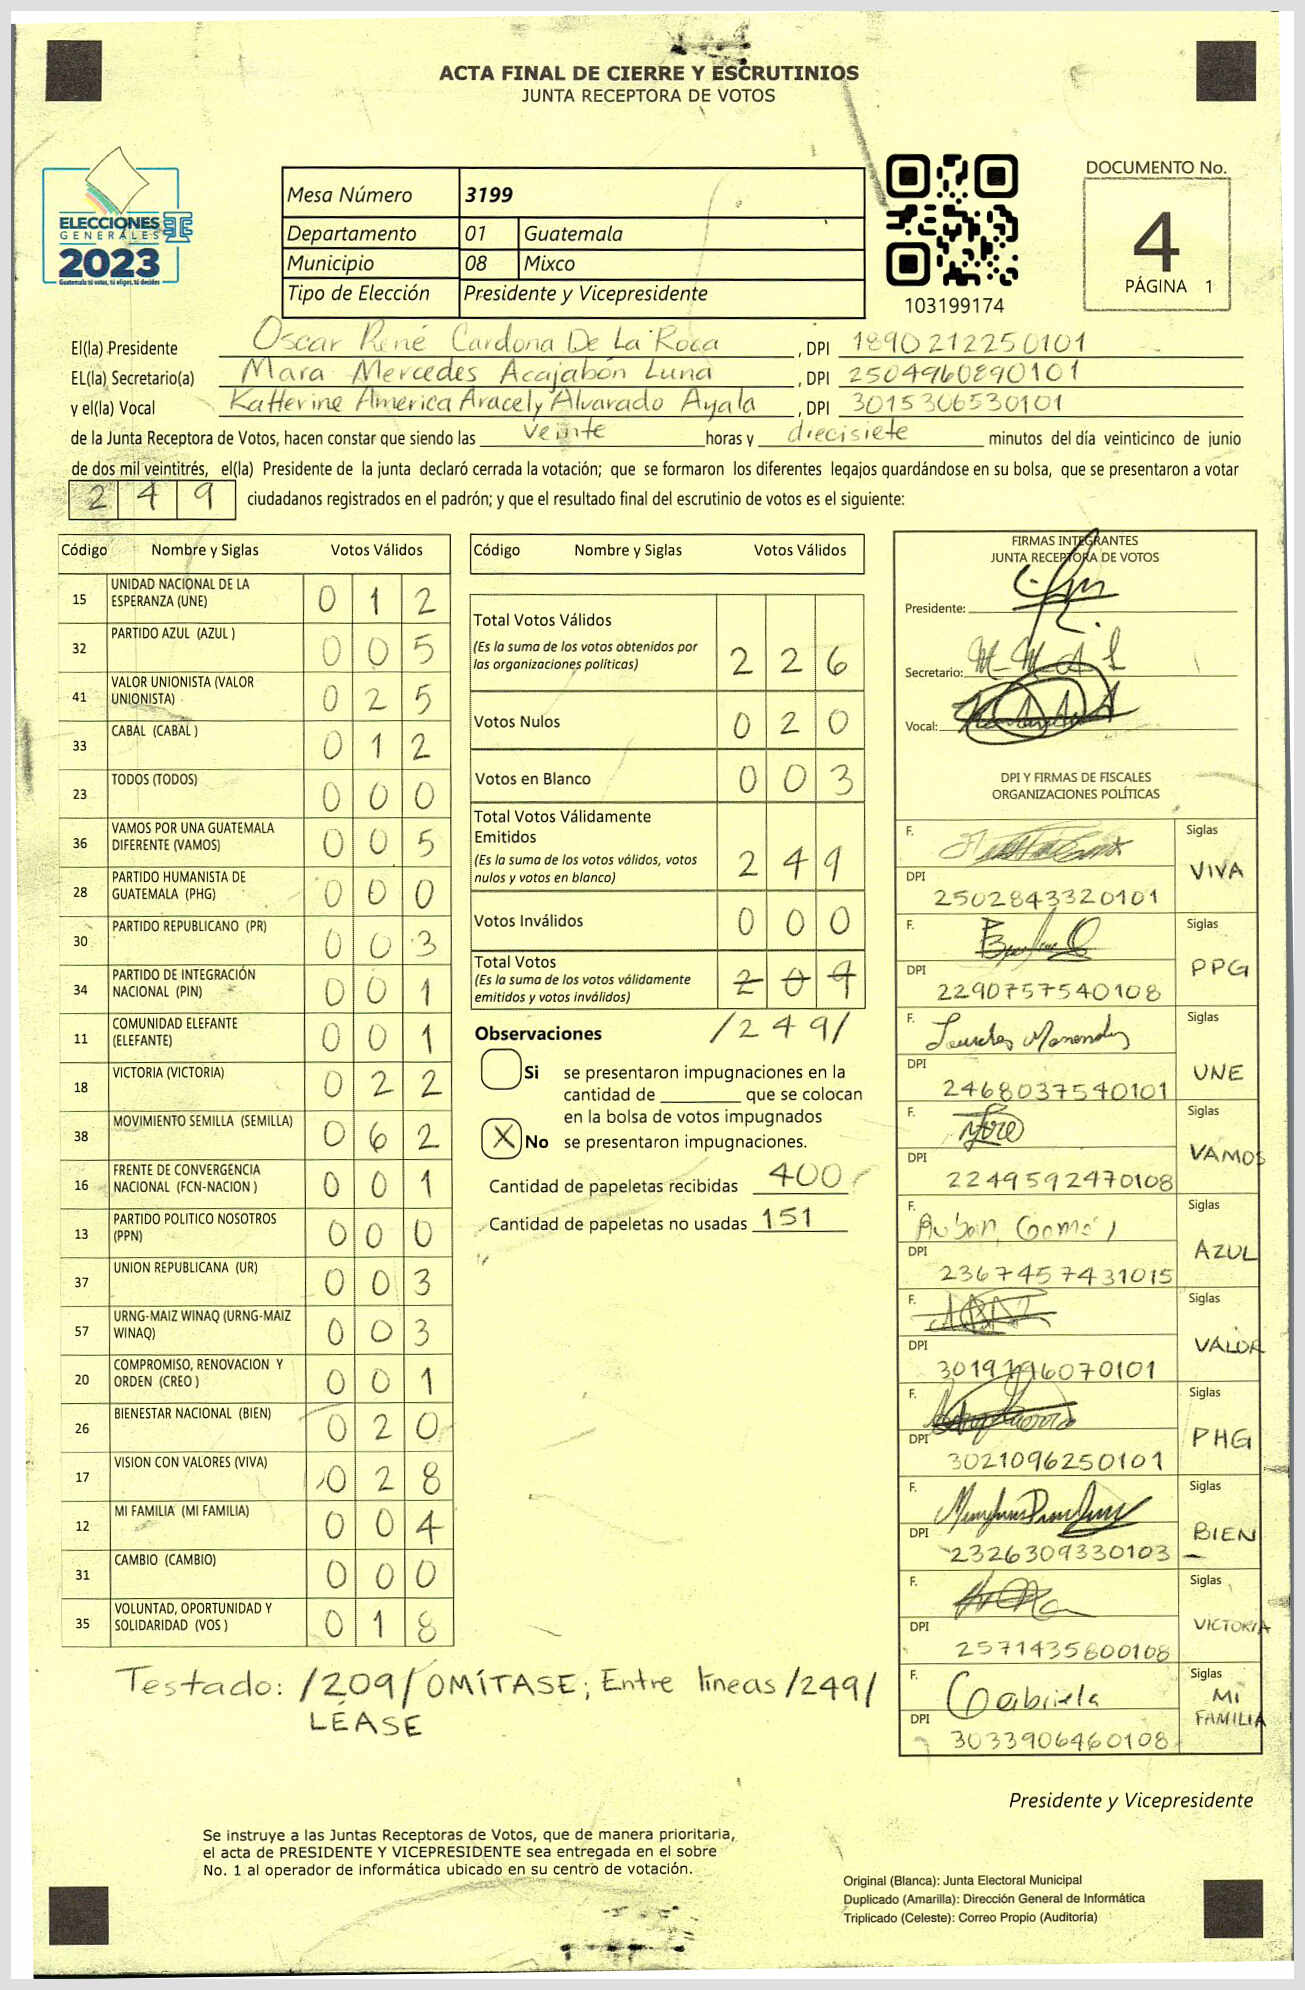 ACTA FINAL DE CIERRE Y ESCRUTINIOS
JUNTA RECEPTORA DE VOTOS
ELECCIONES
GENERALES
2023
Guatemala tú votas, tú eliges, tú decides
Mesa Número 3199
Departamento 01 Guatemala
Municipio 08 Mixco
Tipo de Elección Presidente y Vicepresidente
103199174
DOCUMENTO No.
4
PÁGINA 1
El(la) Presidente Oscar René Cardona De La Roca , DPI 1890212250101
EL(la) Secretario(a) Mara Mercedes Acajabón Luna , DPI 2504960890101
y el(la) Vocal Katherine America Aracely Alvarado Ayala , DPI 3015306530101
de la Junta Receptora de Votos, hacen constar que siendo las veinte horas y diecisiete minutos del día veinticinco de junio
de dos mil veintitrés, el(la) Presidente de la junta declaró cerrada la votación; que se formaron los diferentes legajos guardándose en su bolsa, que se presentaron a votar
249 ciudadanos registrados en el padrón; y que el resultado final del escrutinio de votos es el siguiente:
Código Nombre y Siglas Votos Válidos
15 UNIDAD NACIONAL DE LA ESPERANZA (UNE) 0 1 2
32 PARTIDO AZUL (AZUL ) 0 0 5
41 VALOR UNIONISTA (VALOR UNIONISTA) 0 2 5
33 CABAL (CABAL ) 0 1 2
23 TODOS (TODOS) 0 0 0
36 VAMOS POR UNA GUATEMALA DIFERENTE (VAMOS) 0 0 5
28 PARTIDO HUMANISTA DE GUATEMALA (PHG) 0 0 0
30 PARTIDO REPUBLICANO (PR) 0 0 3
34 PARTIDO DE INTEGRACIÓN NACIONAL (PIN) 0 0 1
11 COMUNIDAD ELEFANTE (ELEFANTE) 0 0 1
18 VICTORIA (VICTORIA) 0 2 2
38 MOVIMIENTO SEMILLA (SEMILLA) 0 6 2
16 FRENTE DE CONVERGENCIA NACIONAL (FCN-NACION ) 0 0 1
13 PARTIDO POLITICO NOSOTROS (PPN) 0 0 0
37 UNION REPUBLICANA (UR) 0 0 3
57 URNG-MAIZ WINAQ (URNG-MAIZ WINAQ) 0 0 3
20 COMPROMISO, RENOVACION Y ORDEN (CREO ) 0 0 1
26 BIENESTAR NACIONAL (BIEN) 0 2 0
17 VISION CON VALORES (VIVA) 0 2 8
12 MI FAMILIA (MI FAMILIA) 0 0 4
31 CAMBIO (CAMBIO) 0 0 0
35 VOLUNTAD, OPORTUNIDAD Y SOLIDARIDAD (VOS ) 0 1 8
Testado: /209/ OMÍTASE; Entre líneas /249/
LÉASE
Código Nombre y Siglas Votos Válidos
Total Votos Válidos
(Es la suma de los votos obtenidos por
las organizaciones políticas) 2 2 6
Votos Nulos 0 2 0
Votos en Blanco 0 0 3
Total Votos Válidamente
Emitidos
(Es la suma de los votos válidos, votos
nulos y votos en blanco) 2 4 9
Votos Inválidos 0 0 0
Total Votos
(Es la suma de los votos válidamente
emitidos y votos inválidos) 2 0 9
Observaciones /249/
Si se presentaron impugnaciones en la
cantidad de ________ que se colocan
en la bolsa de votos impugnados
X No se presentaron impugnaciones.
Cantidad de papeletas recibidas 400
Cantidad de papeletas no usadas 151
FIRMAS INTEGRANTES
JUNTA RECEPTORA DE VOTOS
Presidente:
Secretario:
Vocal:
DPI Y FIRMAS DE FISCALES
ORGANIZACIONES POLÍTICAS
F. Siglas
DPI 2502843320101 VIVA
F. Siglas
DPI 2290757540108 PPG
F. Lourdes Siglas
DPI 2468037540101 UNE
F. Siglas
DPI 2249592470108 VAMOS
F. Siglas
DPI 2367457431015 AZUL
F. Siglas
DPI VALOR
F. Siglas
DPI 3021096250101 PHG
F. Siglas
DPI 2326309330103 BIEN
F. Siglas
DPI 2571435800108 VICTORIA
F. Gabriela Siglas
DPI 3033906460108 MI FAMILIA
Presidente y Vicepresidente
Se instruye a las Juntas Receptoras de Votos, que de manera prioritaria,
el acta de PRESIDENTE Y VICEPRESIDENTE sea entregada en el sobre
No. 1 al operador de informática ubicado en su centro de votación.
Original (Blanca): Junta Electoral Municipal
Duplicado (Amarilla): Dirección General de Informática
Triplicado (Celeste): Correo Propio (Auditoría)